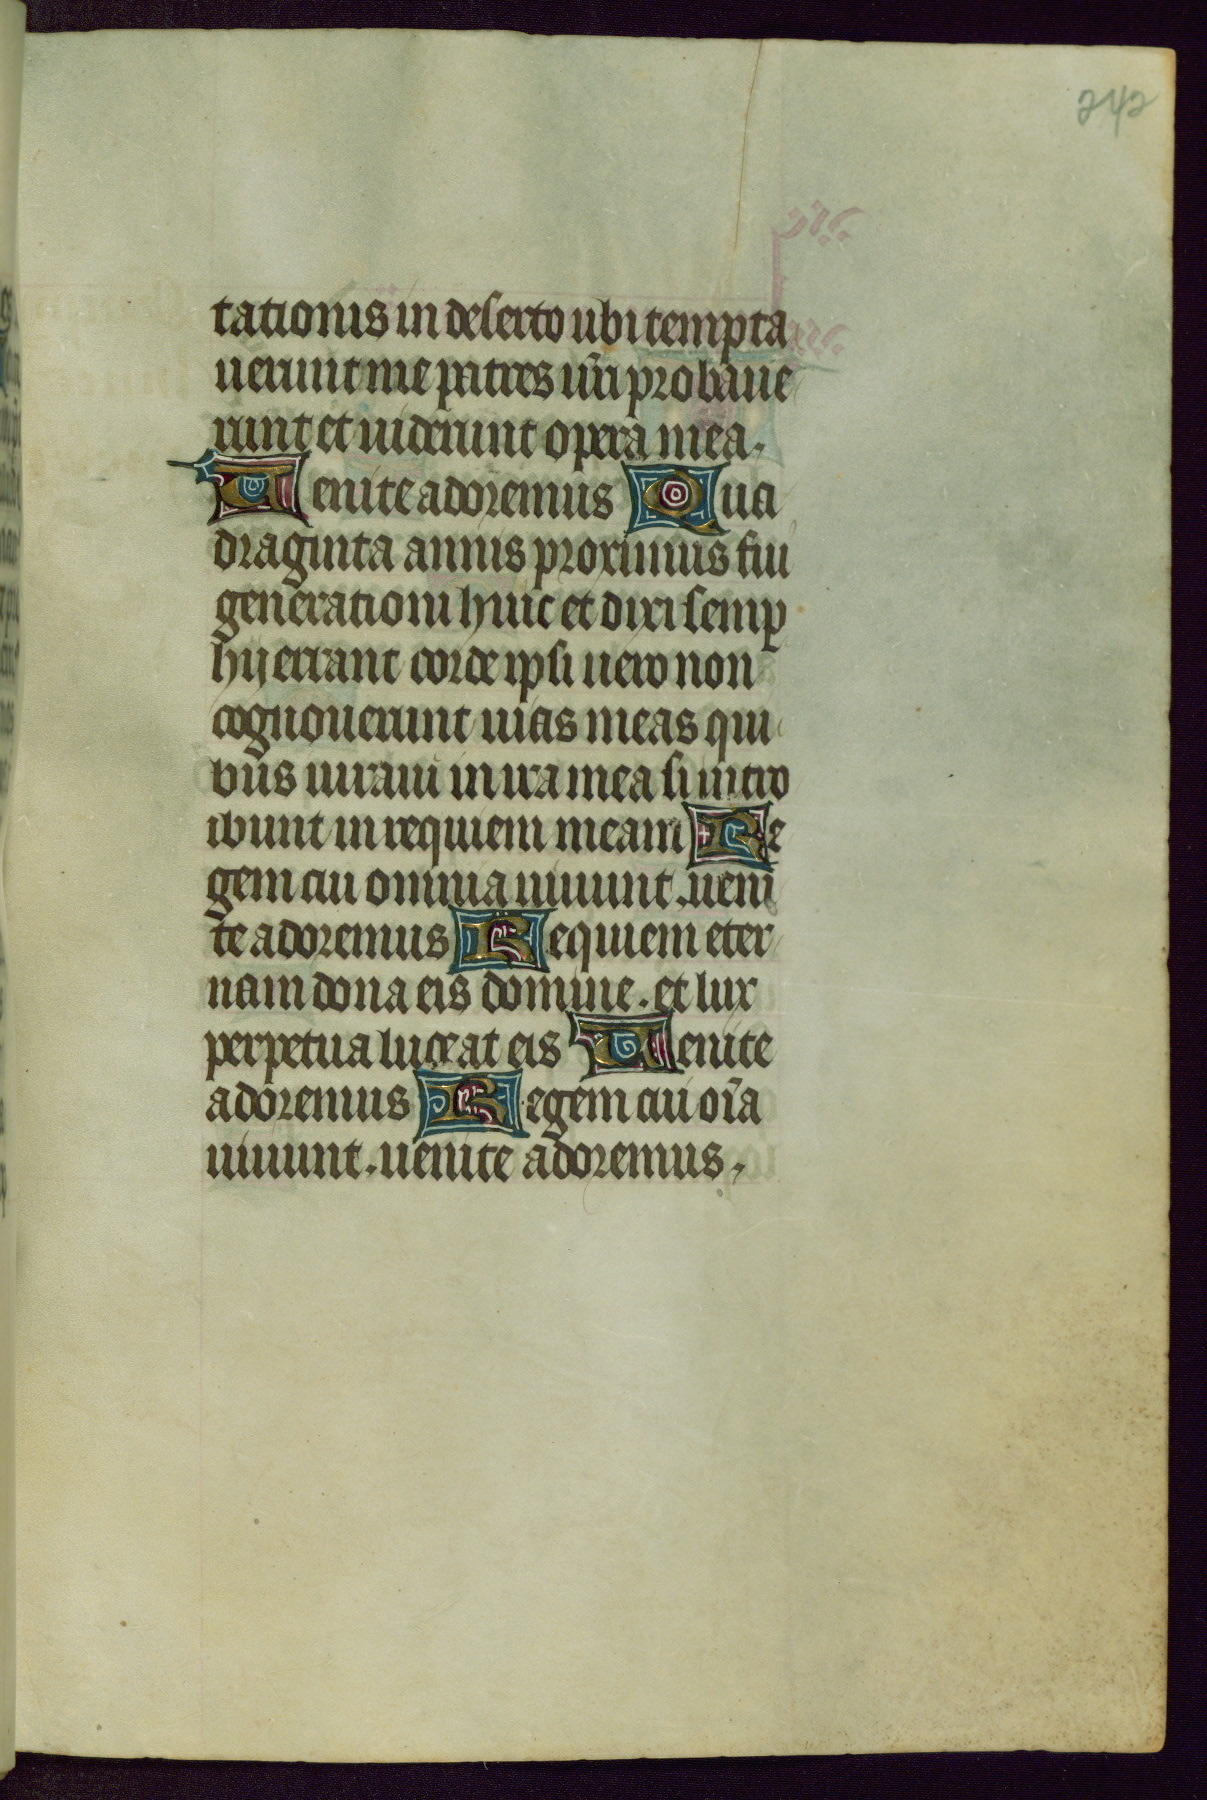 242
tationis in deserto ubi tempta
uerunt me patres vr̃i probaue
runt et uiderunt opera mea.
Uenite adoremus Qua
draginta annis proximus fui
generationi huic et dixi semp
hij errant corde ipsi uero non
cognouerunt uias meas qui
bus iuraui in ira mea si intro
ibunt in requiem meam Re
gem cui omnia uiuunt. ueni
te adoremus Requiem eter
nam dona eis domine. et lux
perpetua luceat eis Uenite
adoremus Regem cui oĩa
uiuunt. uenite adoremus.